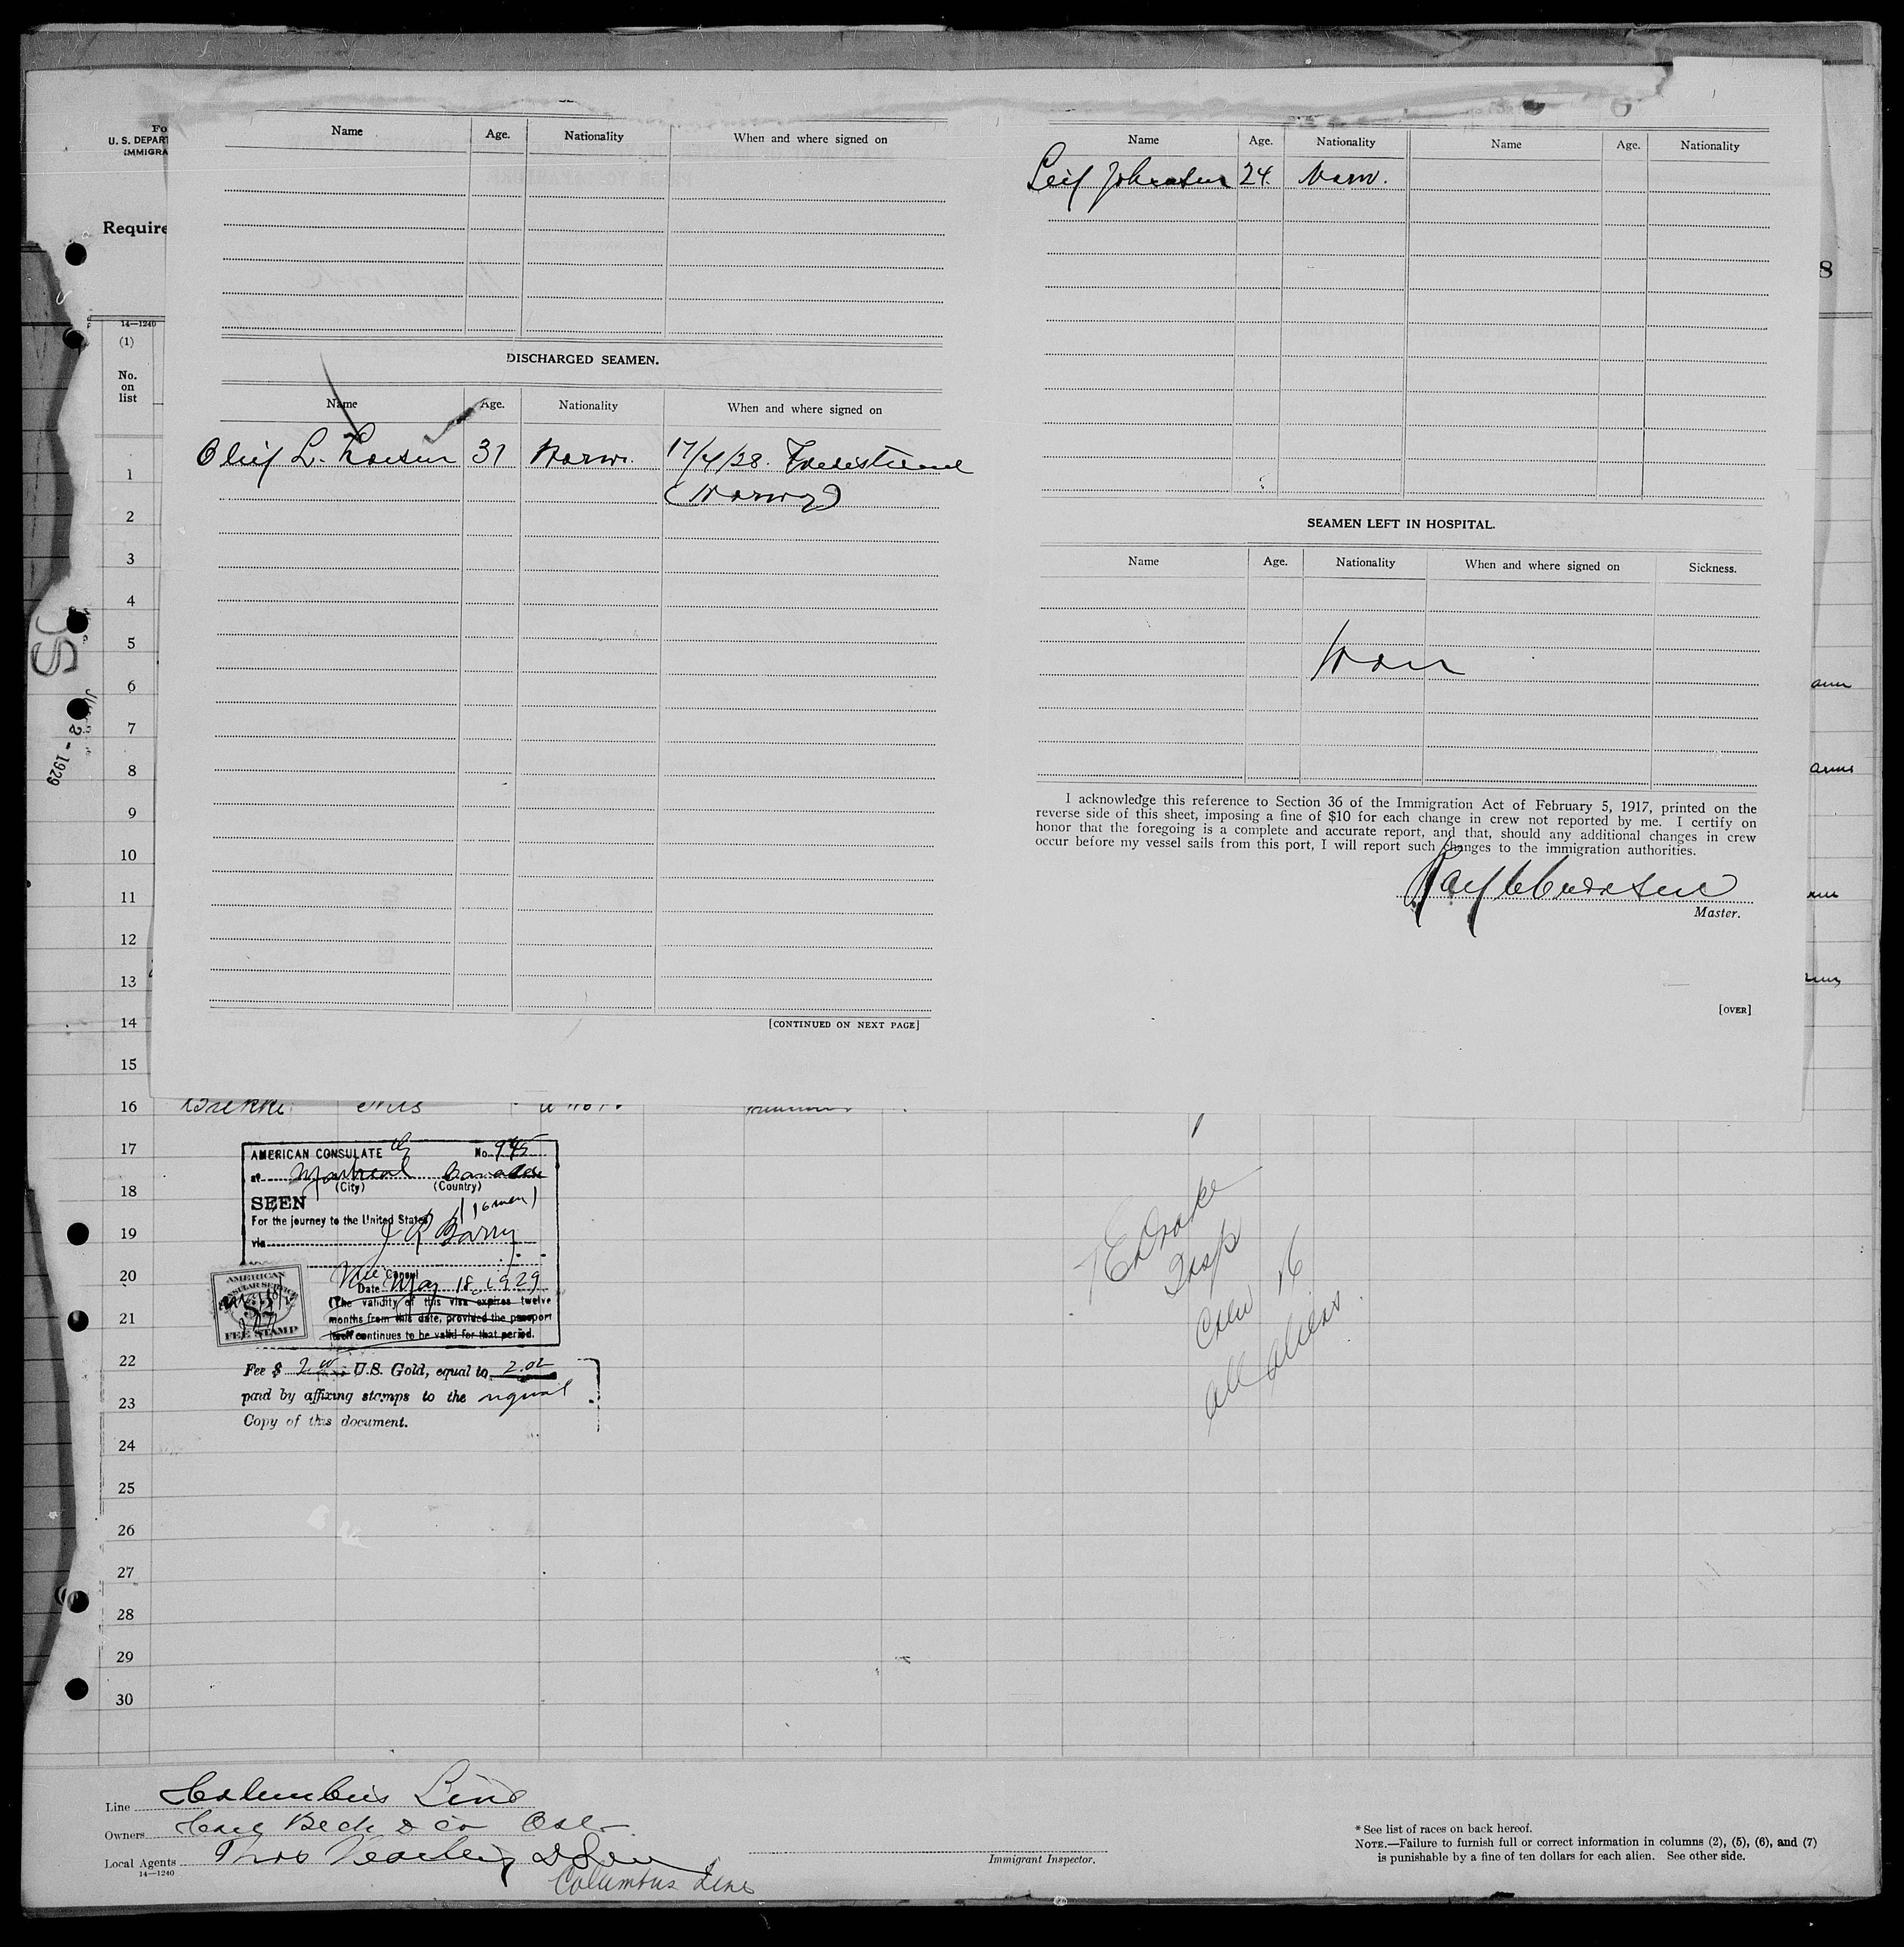 Fo
U. S. DEPART
IMMIGRA
Require
8
14—1240
(1)
No.
on
list
Name Age. Nationality When and where signed on
DISCHARGED SEAMEN.
Name Age. Nationality When and where signed on
Oluf L. 31 Norw. 17/4/28.
(Norway)
[CONTINUED ON NEXT PAGE]
Name Age. Nationality Name Age. Nationality
Leif Johnsen 24. Norw.
SEAMEN LEFT IN HOSPITAL.
Name Age. Nationality When and where signed on Sickness.
I acknowledge this reference to Section 36 of the Immigration Act of February 5, 1917, printed on the
reverse side of this sheet, imposing a fine of $10 for each change in crew not reported by me. I certify on
honor that the foregoing is a complete and accurate report, and that, should any additional changes in crew
occur before my vessel sails from this port, I will report such changes to the immigration authorities.
Master.
[OVER]
2 - 1929
1
2
3
4
5
6
7
8
9
10
11
12
13
14
15
16
17
18
19
20
21
22
23
24
25
26
27
28
29
30
AMERICAN CONSULATE No. 995
at Montreal Canada
(City) (Country)
SEEN (16 men)
For the journey to the United States
via J R Barry
Vice Consul
Date May 18, 1929
(The validity of this visa expires twelve
months from this date, provided the passport
itself continues to be valid for that period.
AMERICAN
CONSULAR SERVICE
$2
FEE STAMP
Fee $ 2.00 U.S. Gold, equal to 2.02
paid by affixing stamps to the
Copy of this document.
Drake
Insp
Crew 16
all aliens
Line Columbus Line
Owners Beck & Co Oslo
Local Agents Thos
Columbus Line
14—1240
Immigrant Inspector.
* See list of races on back hereof.
NOTE.—Failure to furnish full or correct information in columns (2), (5), (6), and (7)
is punishable by a fine of ten dollars for each alien. See other side.